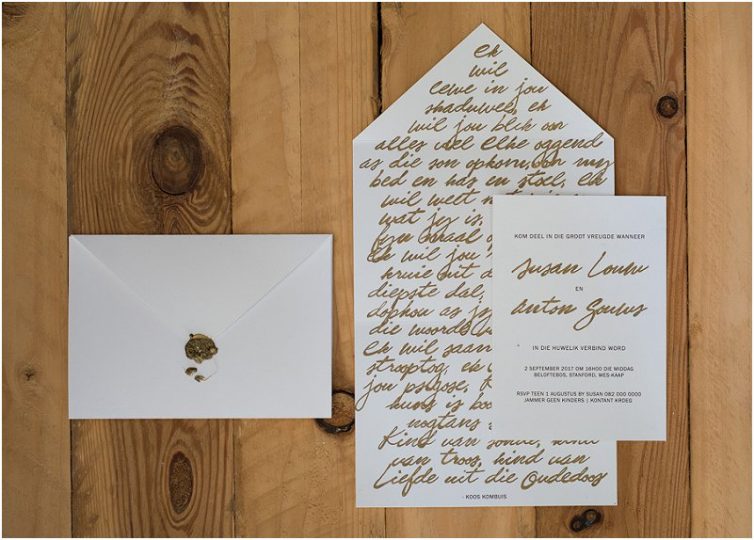 Ek
wil
lewe in jou
skaduwee, ek
wil jou blik oor
alles voel elke oggend
as die son opkom, oor my
bed en kas en stoel. Ek
wil weet
wat jy is,
fyn
Ek wil jou
kruie uit d
diepste dal,
dophou as jy
die woorde
Ek wil saam
strooptog, ek
jou
huis is
nogtans
Kind van sonde, kind
van troos, kind van
Liefde uit die Oudedoos
- KOOS KOMBUIS
KOM DEEL IN DIE GROOT VREUGDE WANNEER
Susan Louw
EN
Anton Gouws
IN DIE HUWELIK VERBIND WORD
2 SEPTEMBER 2017 OM 16H00 DIE MIDDAG
BELOFTEBOS, STANFORD, WES-KAAP
RSVP TEEN 1 AUGUSTUS BY SUSAN 082 000 0000
JAMMER GEEN KINDERS | KONTANT KROEG